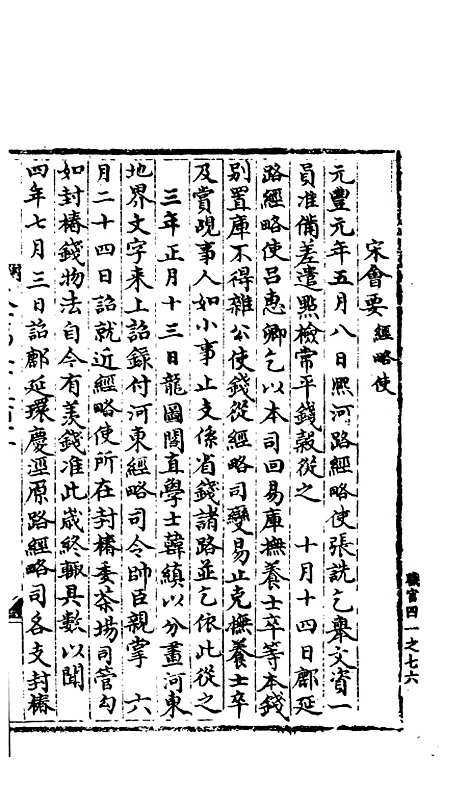 宋會要 經略使
元豐元年五月八日熙河路經略使張詵乞舉文資一
員准備差遣點檢常平錢穀從之 十月十四日鄜延
路經略使呂惠卿乞以本司回易庫撫養士卒等本錢
別置庫不得雜公使錢從經略司變易止充撫養士卒
及賞覘事人如小事止支係省錢諸路並乞依此從之
三年正月十三日龍圖閣直學士韓縝以分畫河東
地界文字来上詔錄付河東經略司令帥臣親掌 六
月二十四日詔就近經略使所在封樁委茶場司管勾
如封樁錢物法自今有羨錢准此歲終輒具數以聞
四年七月三日詔鄜延環慶涇原路經略司各支封樁
職官四一之七六